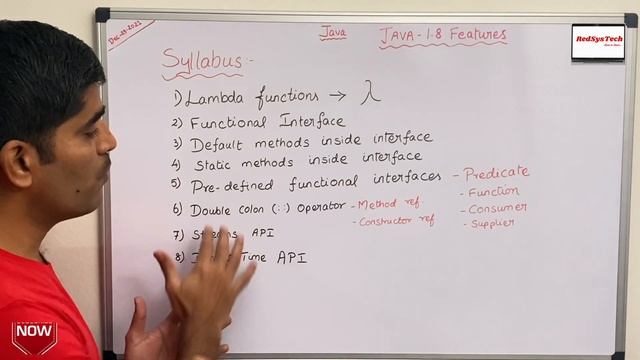 Dec-28-2023
Java
JAVA-1.8 Features
RedSysTech
Syllabus:-
1) Lambda functions → λ
2) Functional Interface
3) Default methods inside interface
4) Static methods inside interface
5) Pre-defined functional interfaces - Predicate
- Function
- Consumer
- Supplier
6) Double colon (::) Operator - Method ref
- Constructor ref
7) Streams API
8) Time API
NOW